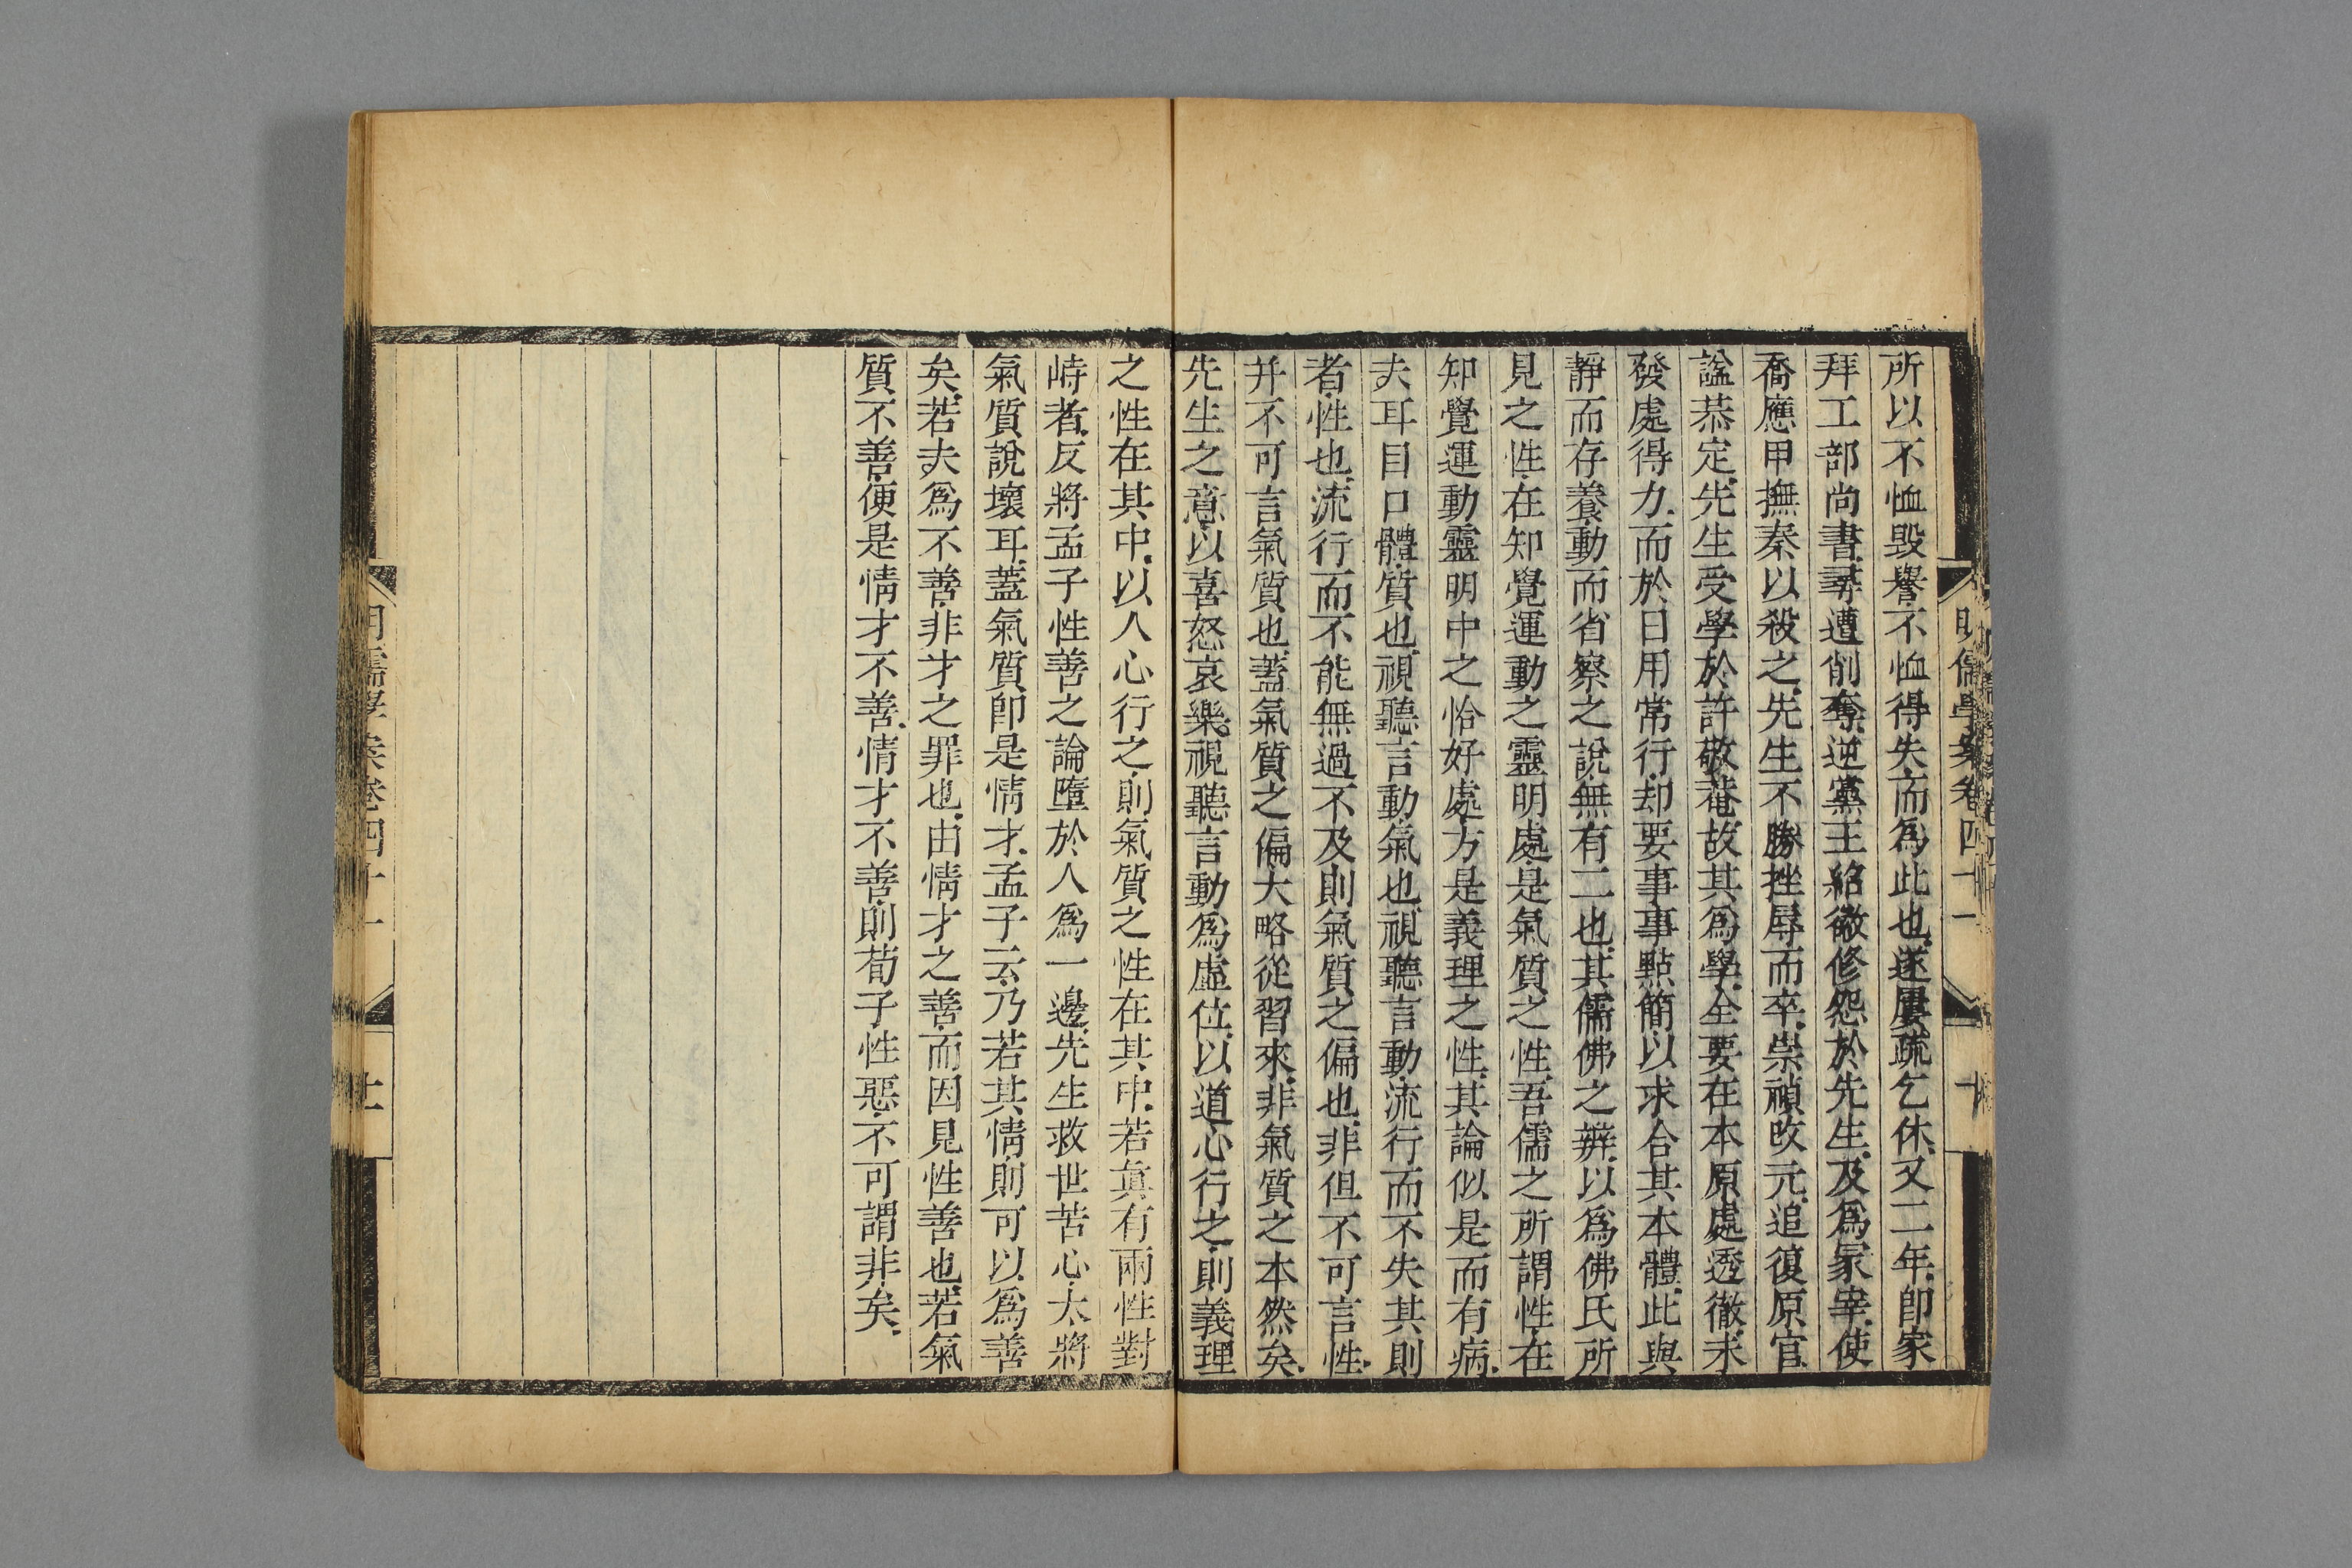 明儒學案卷四十一
十
所以不恤毀譽不恤得失而爲此也遂屢疏乞休又二年卽家
拜工部尚書尋遭削奪逆黨王紹徽修怨於先生及爲冢宰使
喬應甲撫秦以殺之先生不勝挫辱而卒崇禎改元追復原官
諡恭定先生受學於許敬菴故其爲學全要在本原處透徹未
發處得力而於日用常行却要事事點簡以求合其本體此與
靜而存養動而省察之說無有二也其儒佛之辨以爲佛氏所
見之性在知覺運動之靈明處是氣質之性吾儒之所謂性在
知覺運動靈明中之恰好處方是義理之性其論似是而有病
夫耳目口體質也視聽言動氣也視聽言動流行而不失其則
者性也流行而不能無過不及則氣質之偏也非但不可言性
并不可言氣質也蓋氣質之偏大略從習來非氣質之本然矣
先生之意以喜怒哀樂視聽言動爲虛位以道心行之則義理
之性在其中以人心行之則氣質之性在其中若眞有兩性對
峙者反將孟子性善之論墮於人爲一邊先生救世苦心太將
氣質說壞耳蓋氣質卽是情才孟子云乃若其情則可以爲善
矣若夫爲不善非才之罪也由情才之善而因見性善也若氣
質不善便是情才不善情才不善則荀子性惡不可謂非矣
明儒學案卷四十一